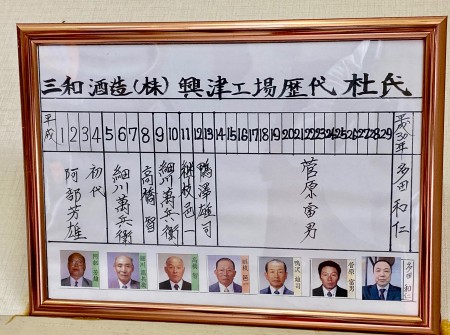 三和酒造(株) 興津工場歴代 杜氏
平成 1 2 3 4 5 6 7 8 9 10 11 12 13 14 15 16 17 18 19 20 21 22 23 24 25 26 27 28 29 平成30年
初代
阿部芳雄
細川萬兵衛
高橋 智
細川萬兵衛
鴨澤雄司
菅原富男
多田和仁
阿部 芳雄
高橋 智
鴨沢 雄司
菅原 富男
多田 和仁